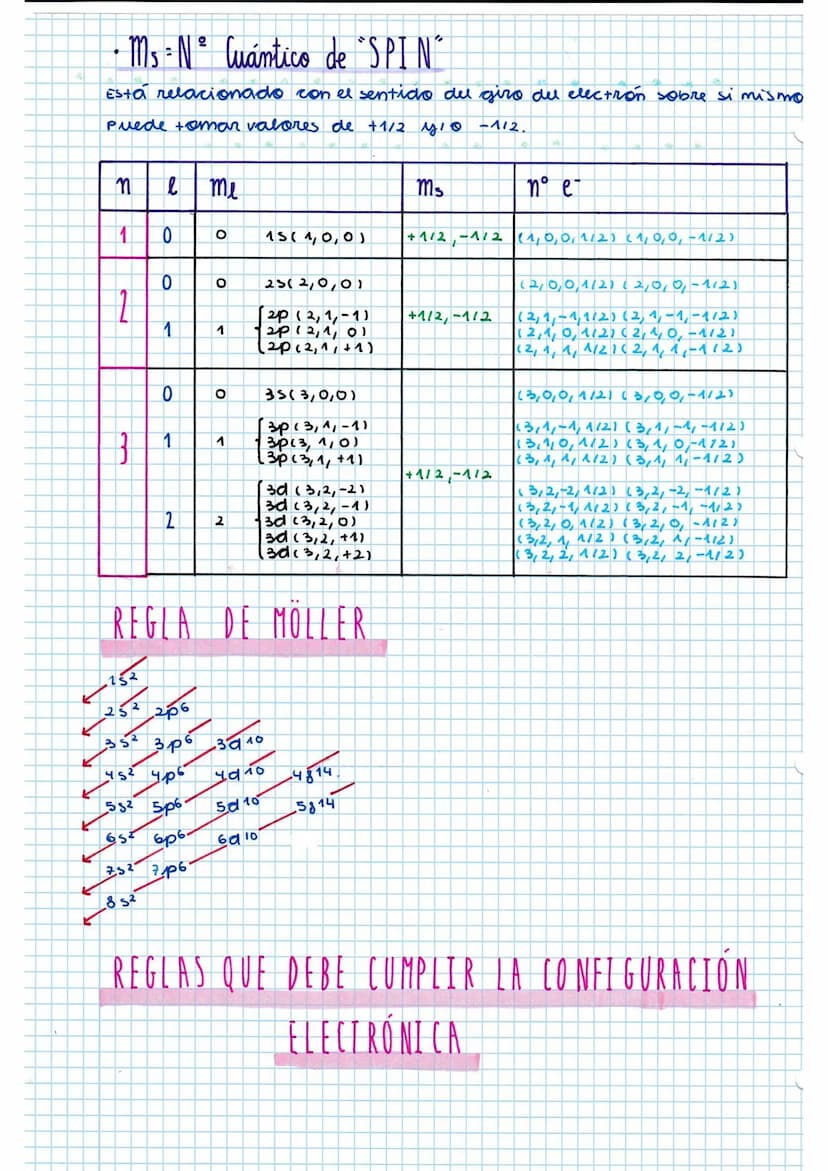 · Ms = Nº Cuántico de "SPIN"
Está relacionado con el sentido del giro del electrón sobre si mismo
Puede tomar valores de +1/2 y/o -1/2.
n l ml ms nº e-
1 0 0 1s(1,0,0) +1/2,-1/2 (1,0,0,1/2) (1,0,0,-1/2)
2
0 0 2s(2,0,0) (2,0,0,1/2) (2,0,0,-1/2)
1 1 +1/2,-1/2
2p (2,1,-1) (2,1,-1,1/2) (2,1,-1,-1/2)
2p (2,1,0) (2,1,0,1/2) (2,1,0,-1/2)
2p (2,1,+1) (2,1,1,1/2) (2,1,1,-1/2)
3
0 0 3s(3,0,0) (3,0,0,1/2) (3,0,0,-1/2)
1 1
3p(3,1,-1) (3,1,-1,1/2) (3,1,-1,-1/2)
3p(3,1,0) (3,1,0,1/2) (3,1,0,-1/2)
3p(3,1,+1) (3,1,1,1/2) (3,1,1,-1/2)
+1/2,-1/2
2 2
3d (3,2,-2) (3,2,-2,1/2) (3,2,-2,-1/2)
3d (3,2,-1) (3,2,-1,1/2) (3,2,-1,-1/2)
3d (3,2,0) (3,2,0,1/2) (3,2,0,-1/2)
3d (3,2,+1) (3,2,1,1/2) (3,2,1,-1/2)
3d (3,2,+2) (3,2,2,1/2) (3,2,2,-1/2)
REGLA DE MÖLLER
1s2
2s2 2p6
3s2 3p6 3d10
4s2 4p6 4d10 4f14.
5s2 5p6 5d10 5f14
6s2 6p6 6d10
7s2 7p6
8s2
REGLAS QUE DEBE CUMPLIR LA CONFIGURACIÓN
ELECTRÓNICA